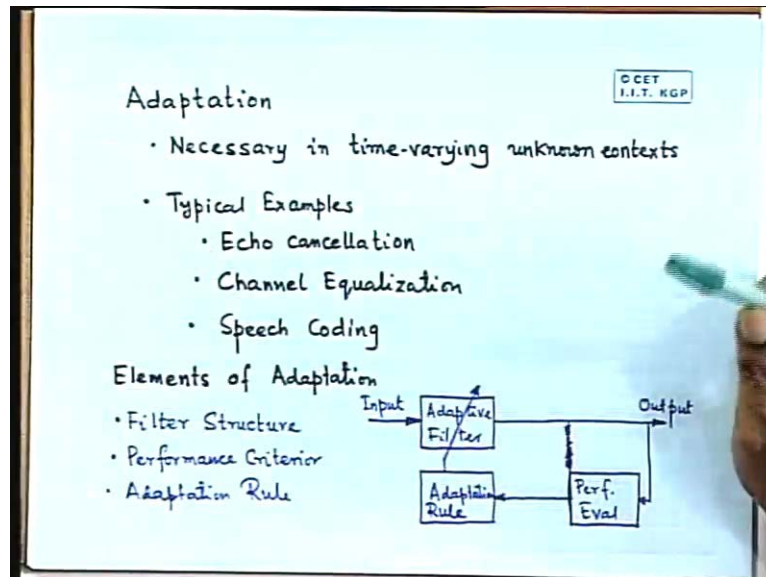 © CET
I.I.T. KGP
Adaptation
· Necessary in time-varying unknown contexts
· Typical Examples
· Echo Cancellation
· Channel Equalization
· Speech Coding
Elements of Adaptation
· Filter Structure
· Performance Criterior
· Adaptation Rule
Input
Adaptive
Filter
Output
Adaptation
Rule
Perf.
Eval